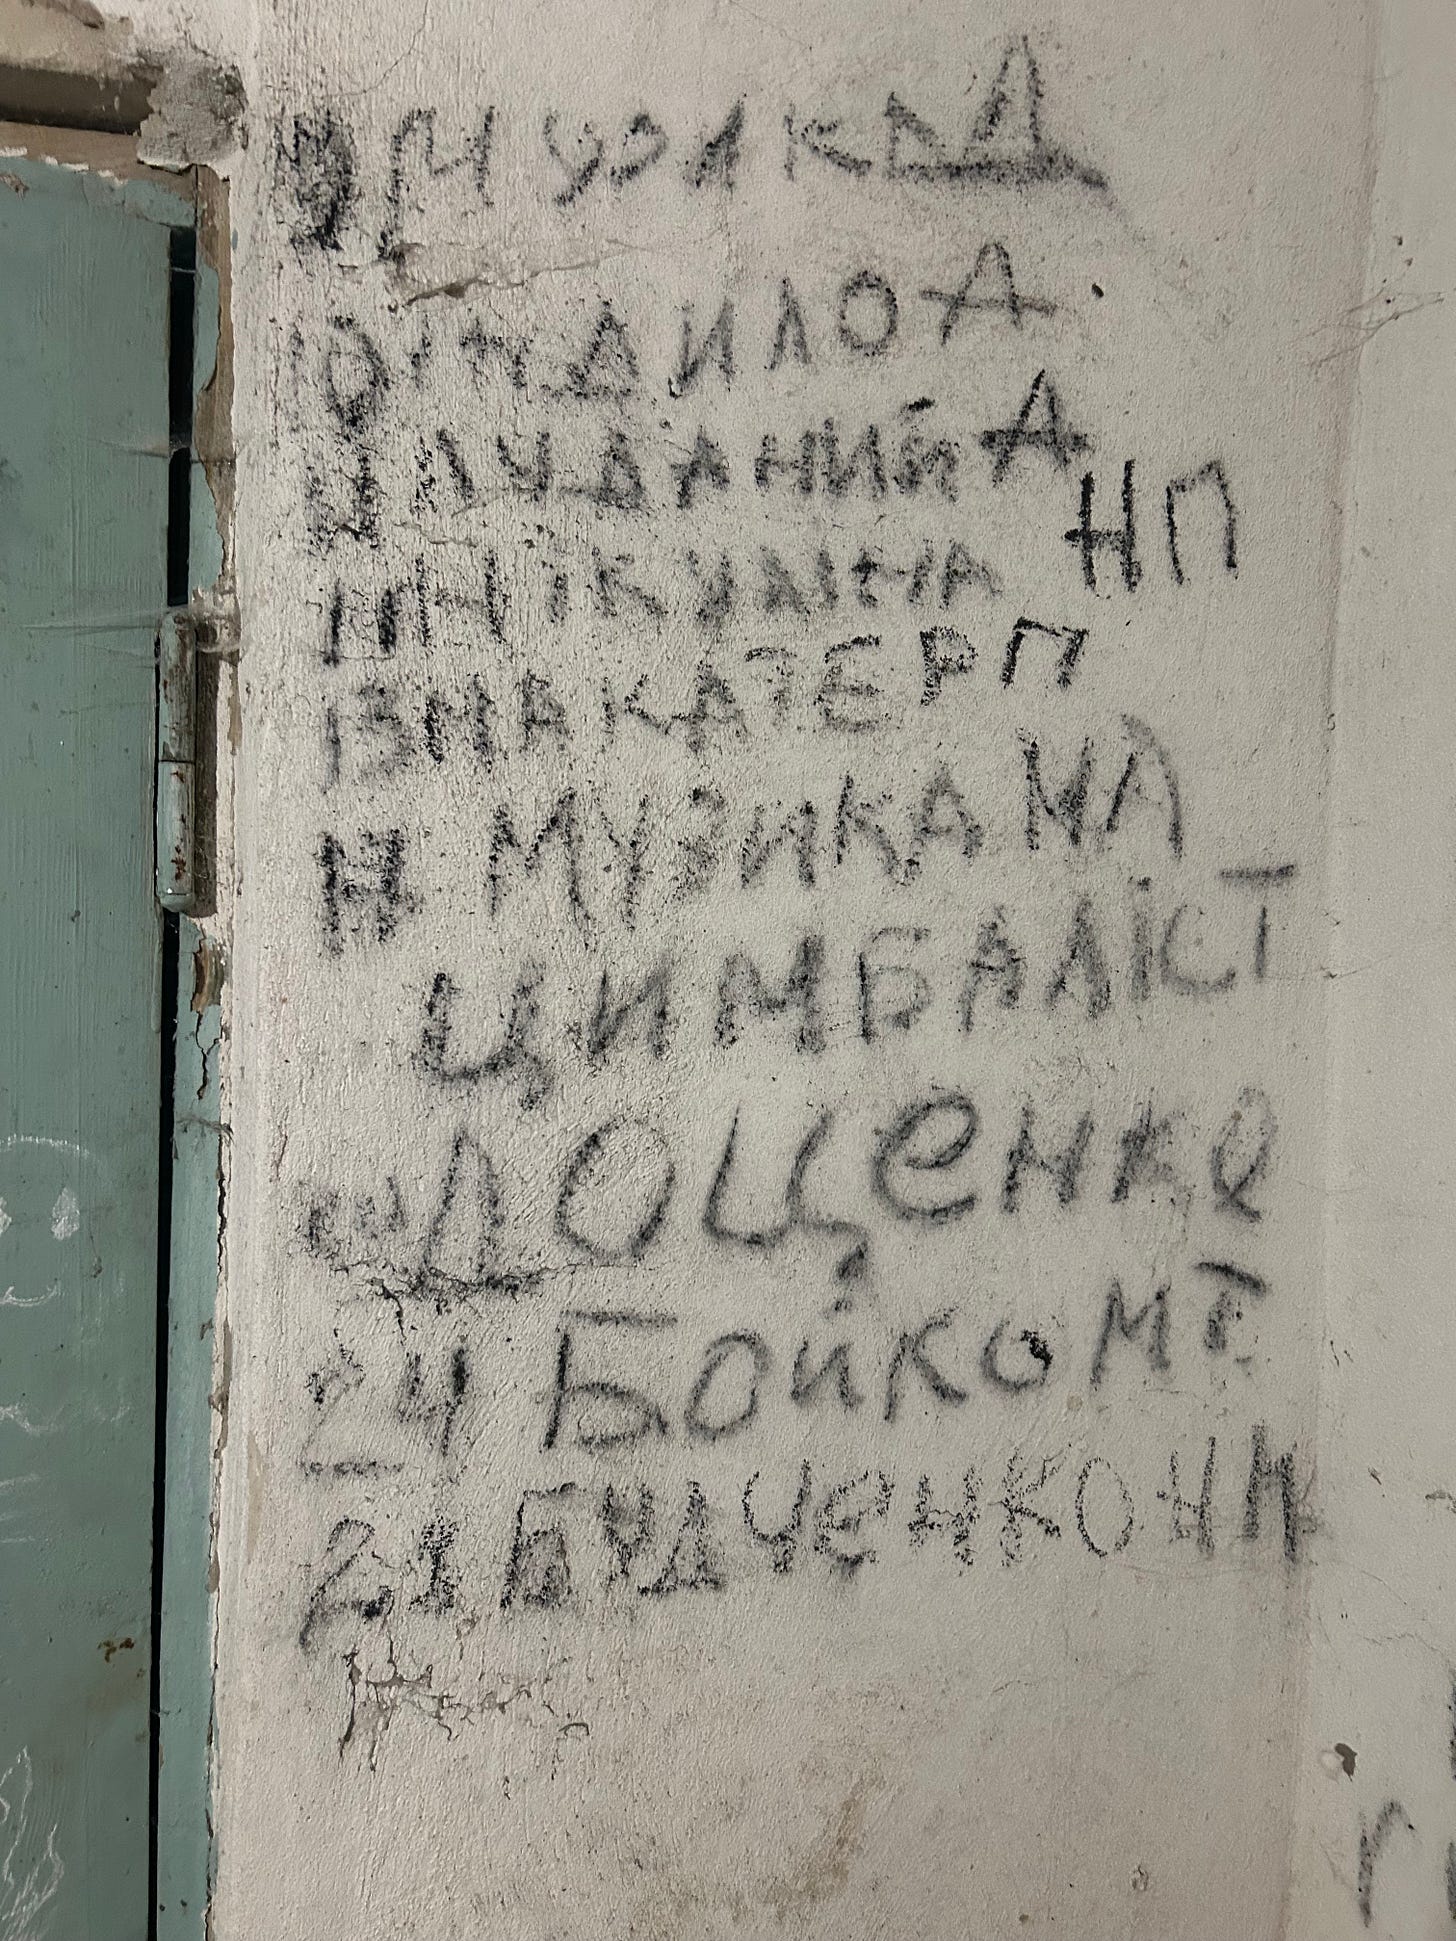 9 МУЗИКА Д
10 ІНДИЛО А
11 ЛУДАНИЙ А
НІКУЛІНА НП
13 МАКАТЕР П
МУЗИКА МА
ЦИМБАЛІСТ
ДОЦЕНКО
24 БОЙКО МТ
21 БУДЧЕНКО НМ